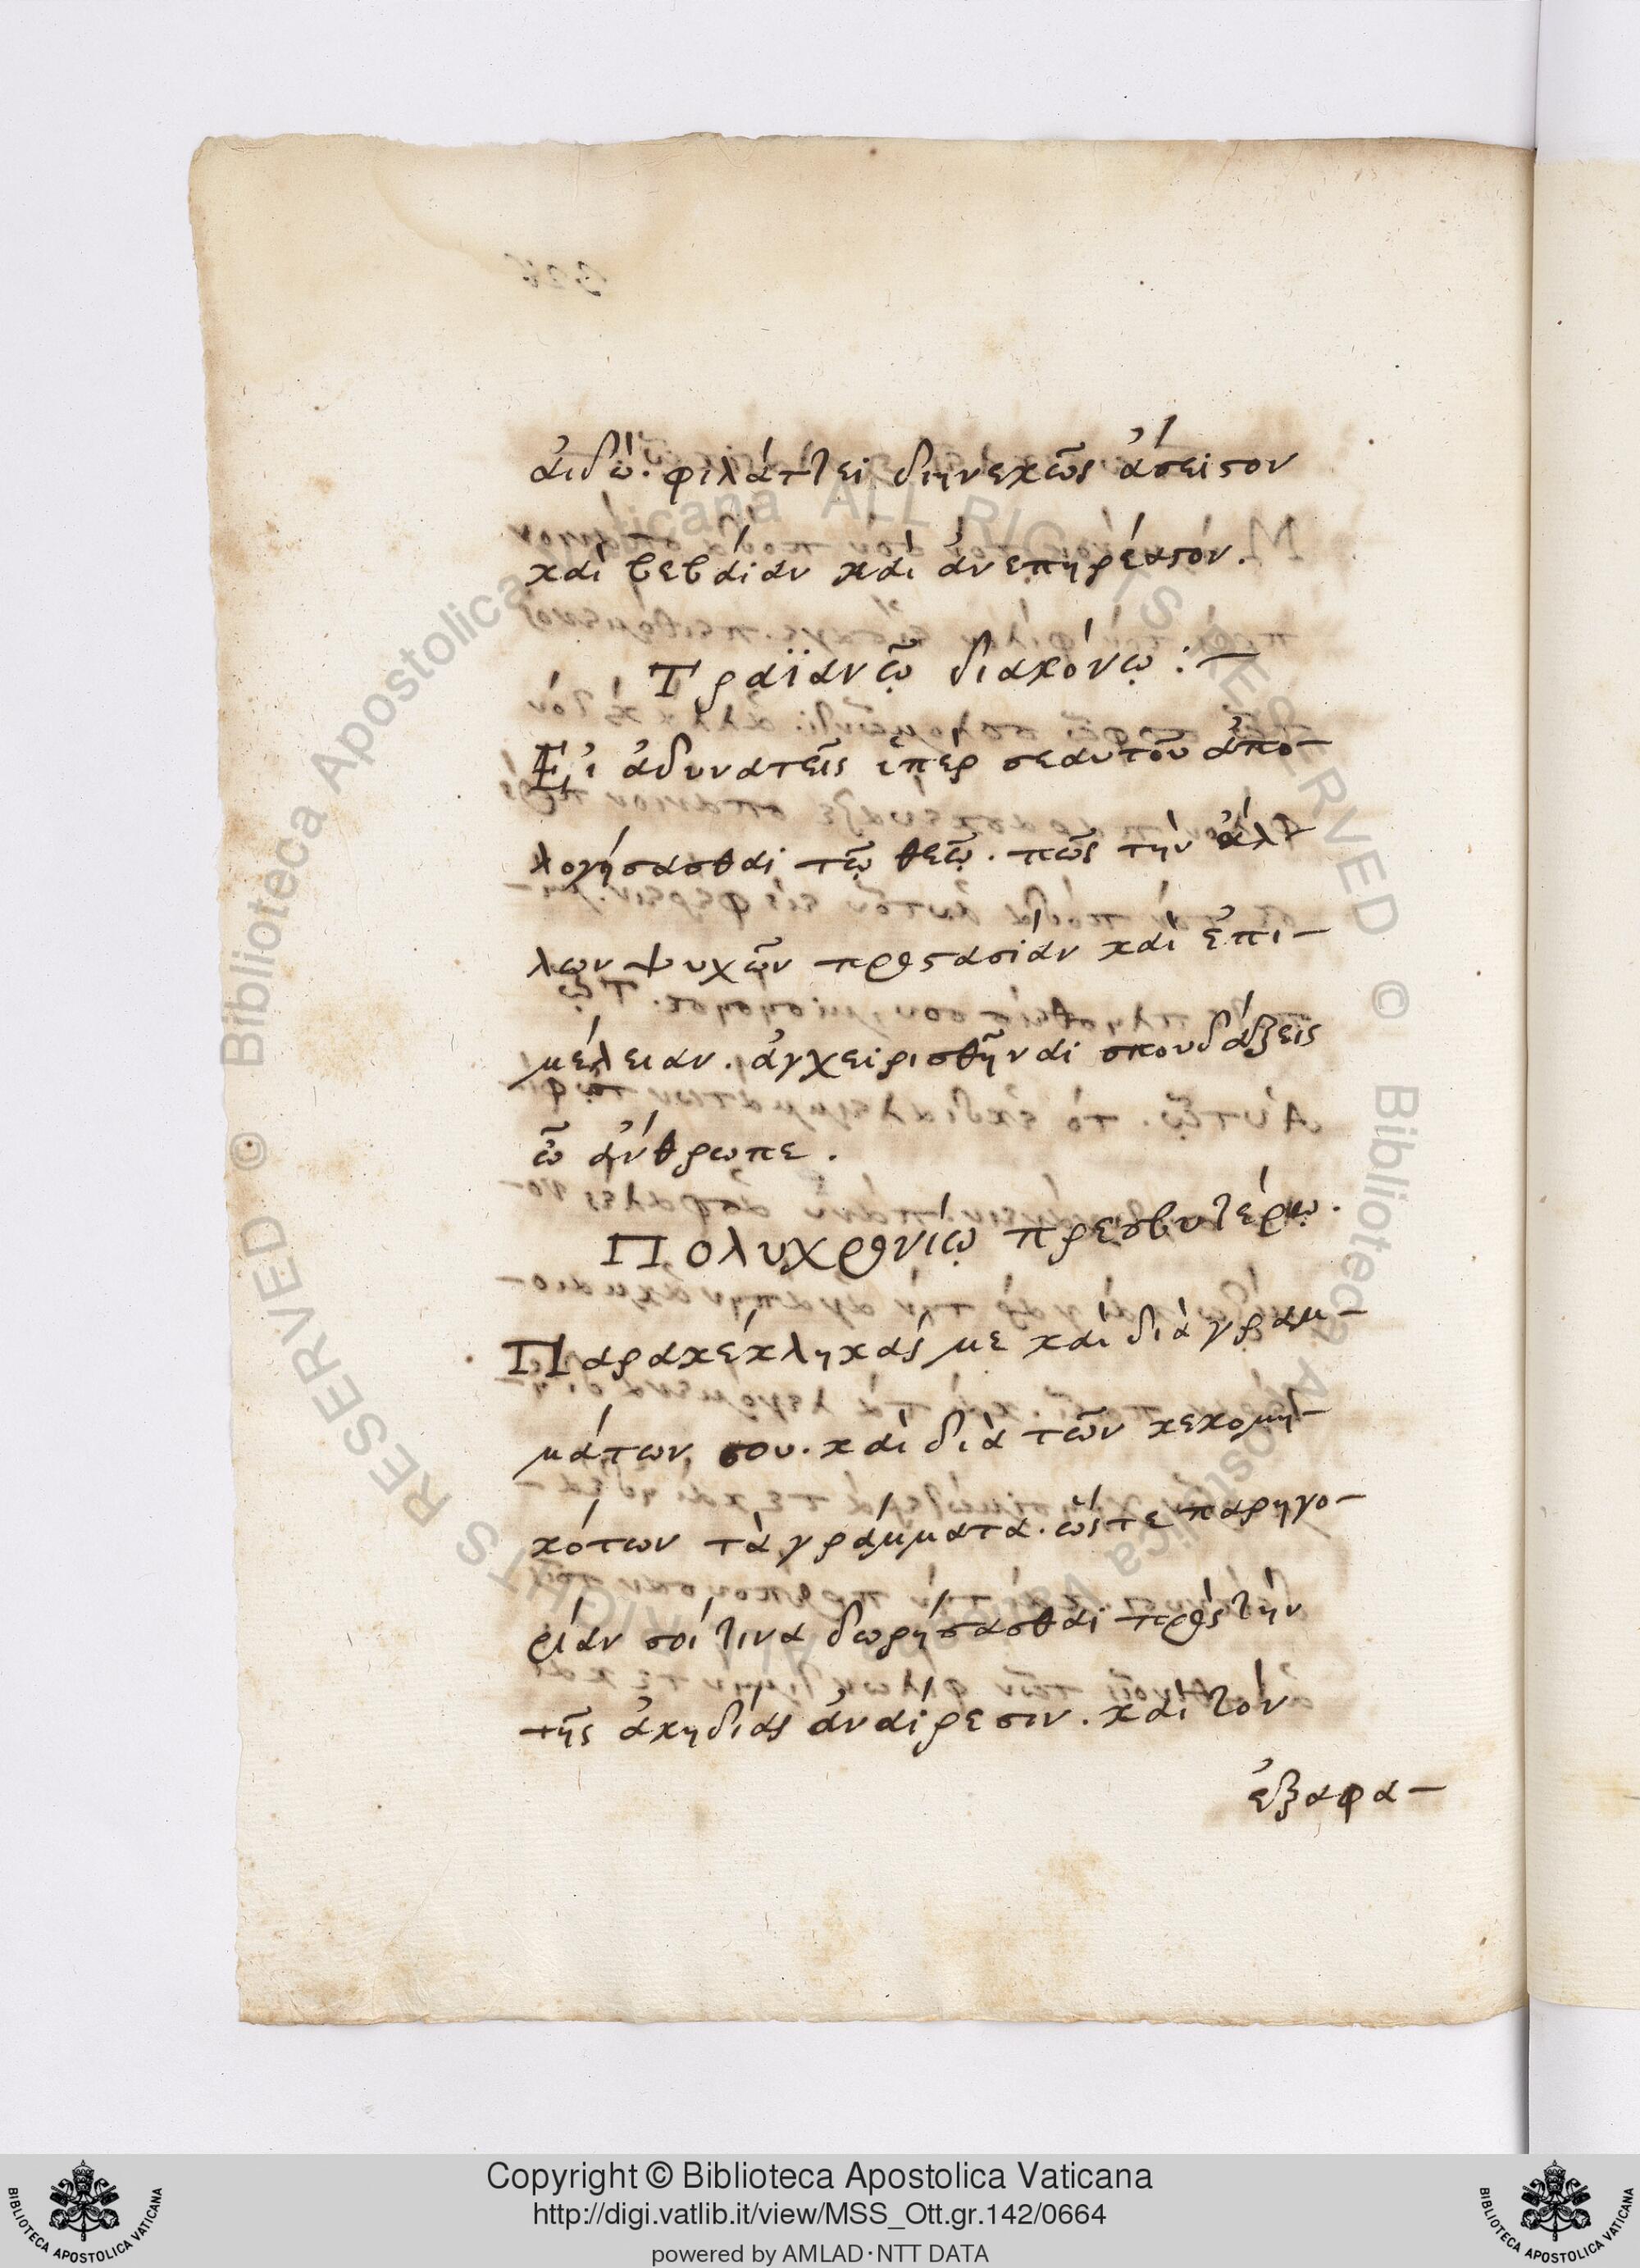 ἀιδῶ. φιλάττει διηνεκῶς ἄσειστον
καὶ βεβάιαν καὶ ἀνεπηρέαστόν.
Τραϊανῷ διακόνῳ :—
Εἰ ἀδυνατεῖς ὑπὲρ σεαυτοῦ ἀπο-
λογήσασθαι τῷ θεῷ. πῶς τὴν ἄλ-
λων ψυχῶν προστασίαν καὶ ἐπι-
μέλειαν. ἀγχειρισθῆναι σπουδάξεις
ῶ ἄνθρωπε.
Πολυχρονίῳ πρεσβυτέρῳ.
Παρακέκληκάς με καὶ διὰ γραμ-
μάτων σου. καὶ διὰ τῶν κεκομη-
κότων τὰ γράμματα. ὥστε παρηγο-
ρίαν σοί τινα δωρήσασθαι πρὸς τὴν
τῆς ἀκηδίας ἀναίρεσιν. καὶ τὸν
ἐξαφα-
Copyright © Biblioteca Apostolica Vaticana
http://digi.vatlib.it/view/MSS_Ott.gr.142/0664
powered by AMLAD·NTT DATA
BIBLIOTECA APOSTOLICA VATICANA
BIBLIOTECA APOSTOLICA VATICANA